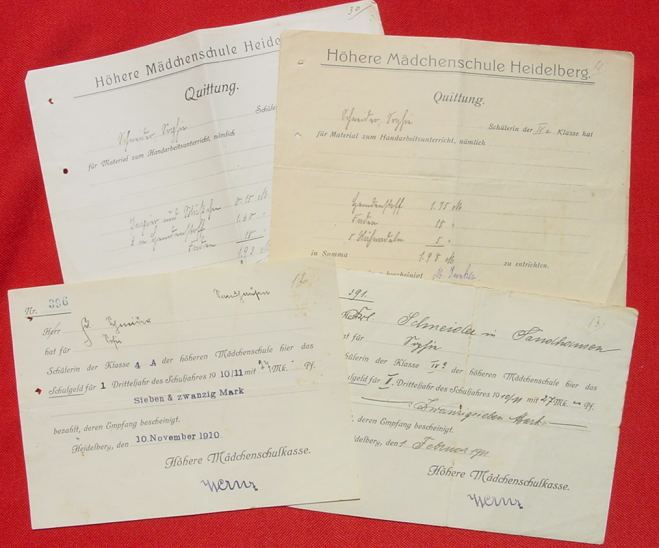 30
Höhere Mädchenschule Heidel
Quittung.
Schüler
Schneider Sophie
für Material zum Handarbeitsunterricht, nämlich
Papier und
0.15 M
1.65 "
Faden 15 "
1.93
Höhere Mädchenschule Heidelberg.
Quittung.
Schneider Sophie Schülerin der IVa Klasse hat
für Material zum Handarbeitsunterricht, nämlich
Hemdenstoff 1.75 M
Faden 18 "
5 Nähnadeln 5 "
in Somma 1.98 " zu entrichten.
bescheinigt
Nr. 396 Sandhausen
Herr
hat für
Schülerin der Klasse 4 A der höheren Mädchenschule hier das
Schulgeld für 1 Dritteljahr des Schuljahres 19 10/11 mit 27 Mk. Pf.
Sieben & zwanzig Mark
bezahlt, deren Empfang bescheinigt.
Heidelberg, den 10. November 1910
Höhere Mädchenschulkasse.
391.
Schneider in Sandhausen
hat für Sophie
Schülerin der Klasse IVa der höheren Mädchenschule hier das
Schulgeld für II. Dritteljahr des Schuljahres 1910/11 mit 27 Mk. — Pf.
Zwanzigsieben Mark
bezahlt, deren Empfang bescheinigt.
Heidelberg, den 1 Februar 1911
Höhere Mädchenschulkasse.